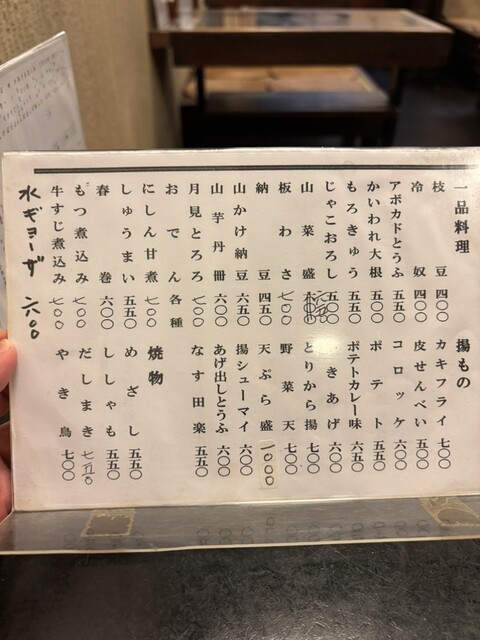 一品料理
枝豆 四〇〇
冷奴 四〇〇
アボカドとうふ 五五〇
かいわれ大根 五〇〇
もろきゅう 五五〇
じゃこおろし 五〇〇
山菜盛
板わさ 七〇〇
納豆 四五〇
山かけ納豆 六五〇
山芋丹冊 六〇〇
月見とろろ 七〇〇
おでん各種
にしん甘煮 七〇〇
しゅうまい 五五〇
春巻 六〇〇
もつ煮込み 七〇〇
牛すじ煮込み 七〇〇
水ギョーザ 六〇〇
揚もの
カキフライ 七〇〇
皮せんべい 五〇〇
コロッケ 六〇〇
ポテト 五五〇
ポテトカレー味 六五〇
きあげ 六〇〇
とりから揚 七〇〇
野菜天 七〇〇
天ぷら盛 一〇〇〇
揚シューマイ 六〇〇
あげ出しとうふ 六〇〇
なす田楽 五五〇
焼物
めざし 五五〇
ししゃも 五五〇
だしまき 七五〇
やき鳥 七〇〇